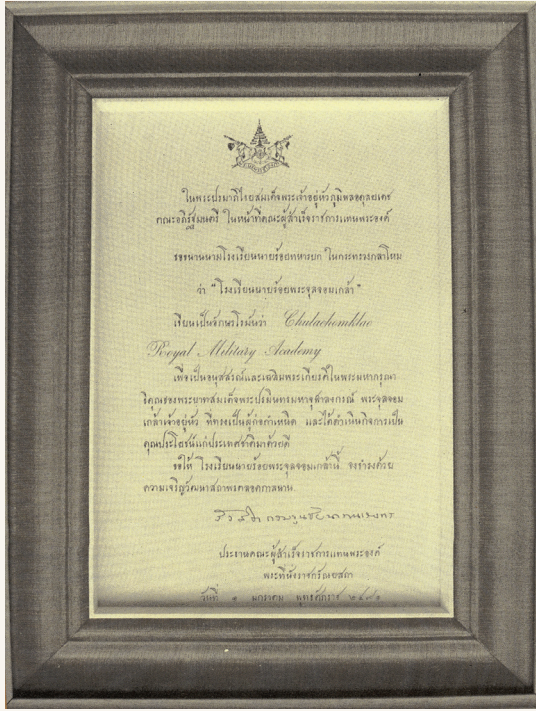 ในพระปรมาภิไธยสมเด็จพระเจ้าอยู่หัวภูมิพลอดุลยเดช
คณะอภิรัฐมนตรี ในหน้าที่คณะผู้สำเร็จราชการแทนพระองค์
ขอขนานนามโรงเรียนนายร้อยทหารบก ในกระทรวงกลาโหม
ว่า “โรงเรียนนายร้อยพระจุลจอมเกล้า”
เขียนเป็นอักษรโรมันว่า Chulachomklao
Royal Military Academy
เพื่อเป็นอนุสสรณ์และเฉลิมพระเกียรติในพระมหากรุณา
ธิคุณของพระบาทสมเด็จพระปรมินทรมหาจุฬาลงกรณ์ พระจุลจอม
เกล้าเจ้าอยู่หัว ที่ทรงเป็นผู้ก่อกำเหนิด และได้ดำเนินกิจการเป็น
คุณประโยชน์แก่ประเทศชาติมาด้วยดี
ขอให้ โรงเรียนนายร้อยพระจุลจอมเกล้านี้ จงธำรงด้วย
ความเจริญวัฒนาสถาพรตลอดกาลนาน
ประธานคณะผู้สำเร็จราชการแทนพระองค์
พระที่นั่งราชกรัณยสภา
วันที่ ๑ มกราคม พุทธศักราช ๒๔๙๑